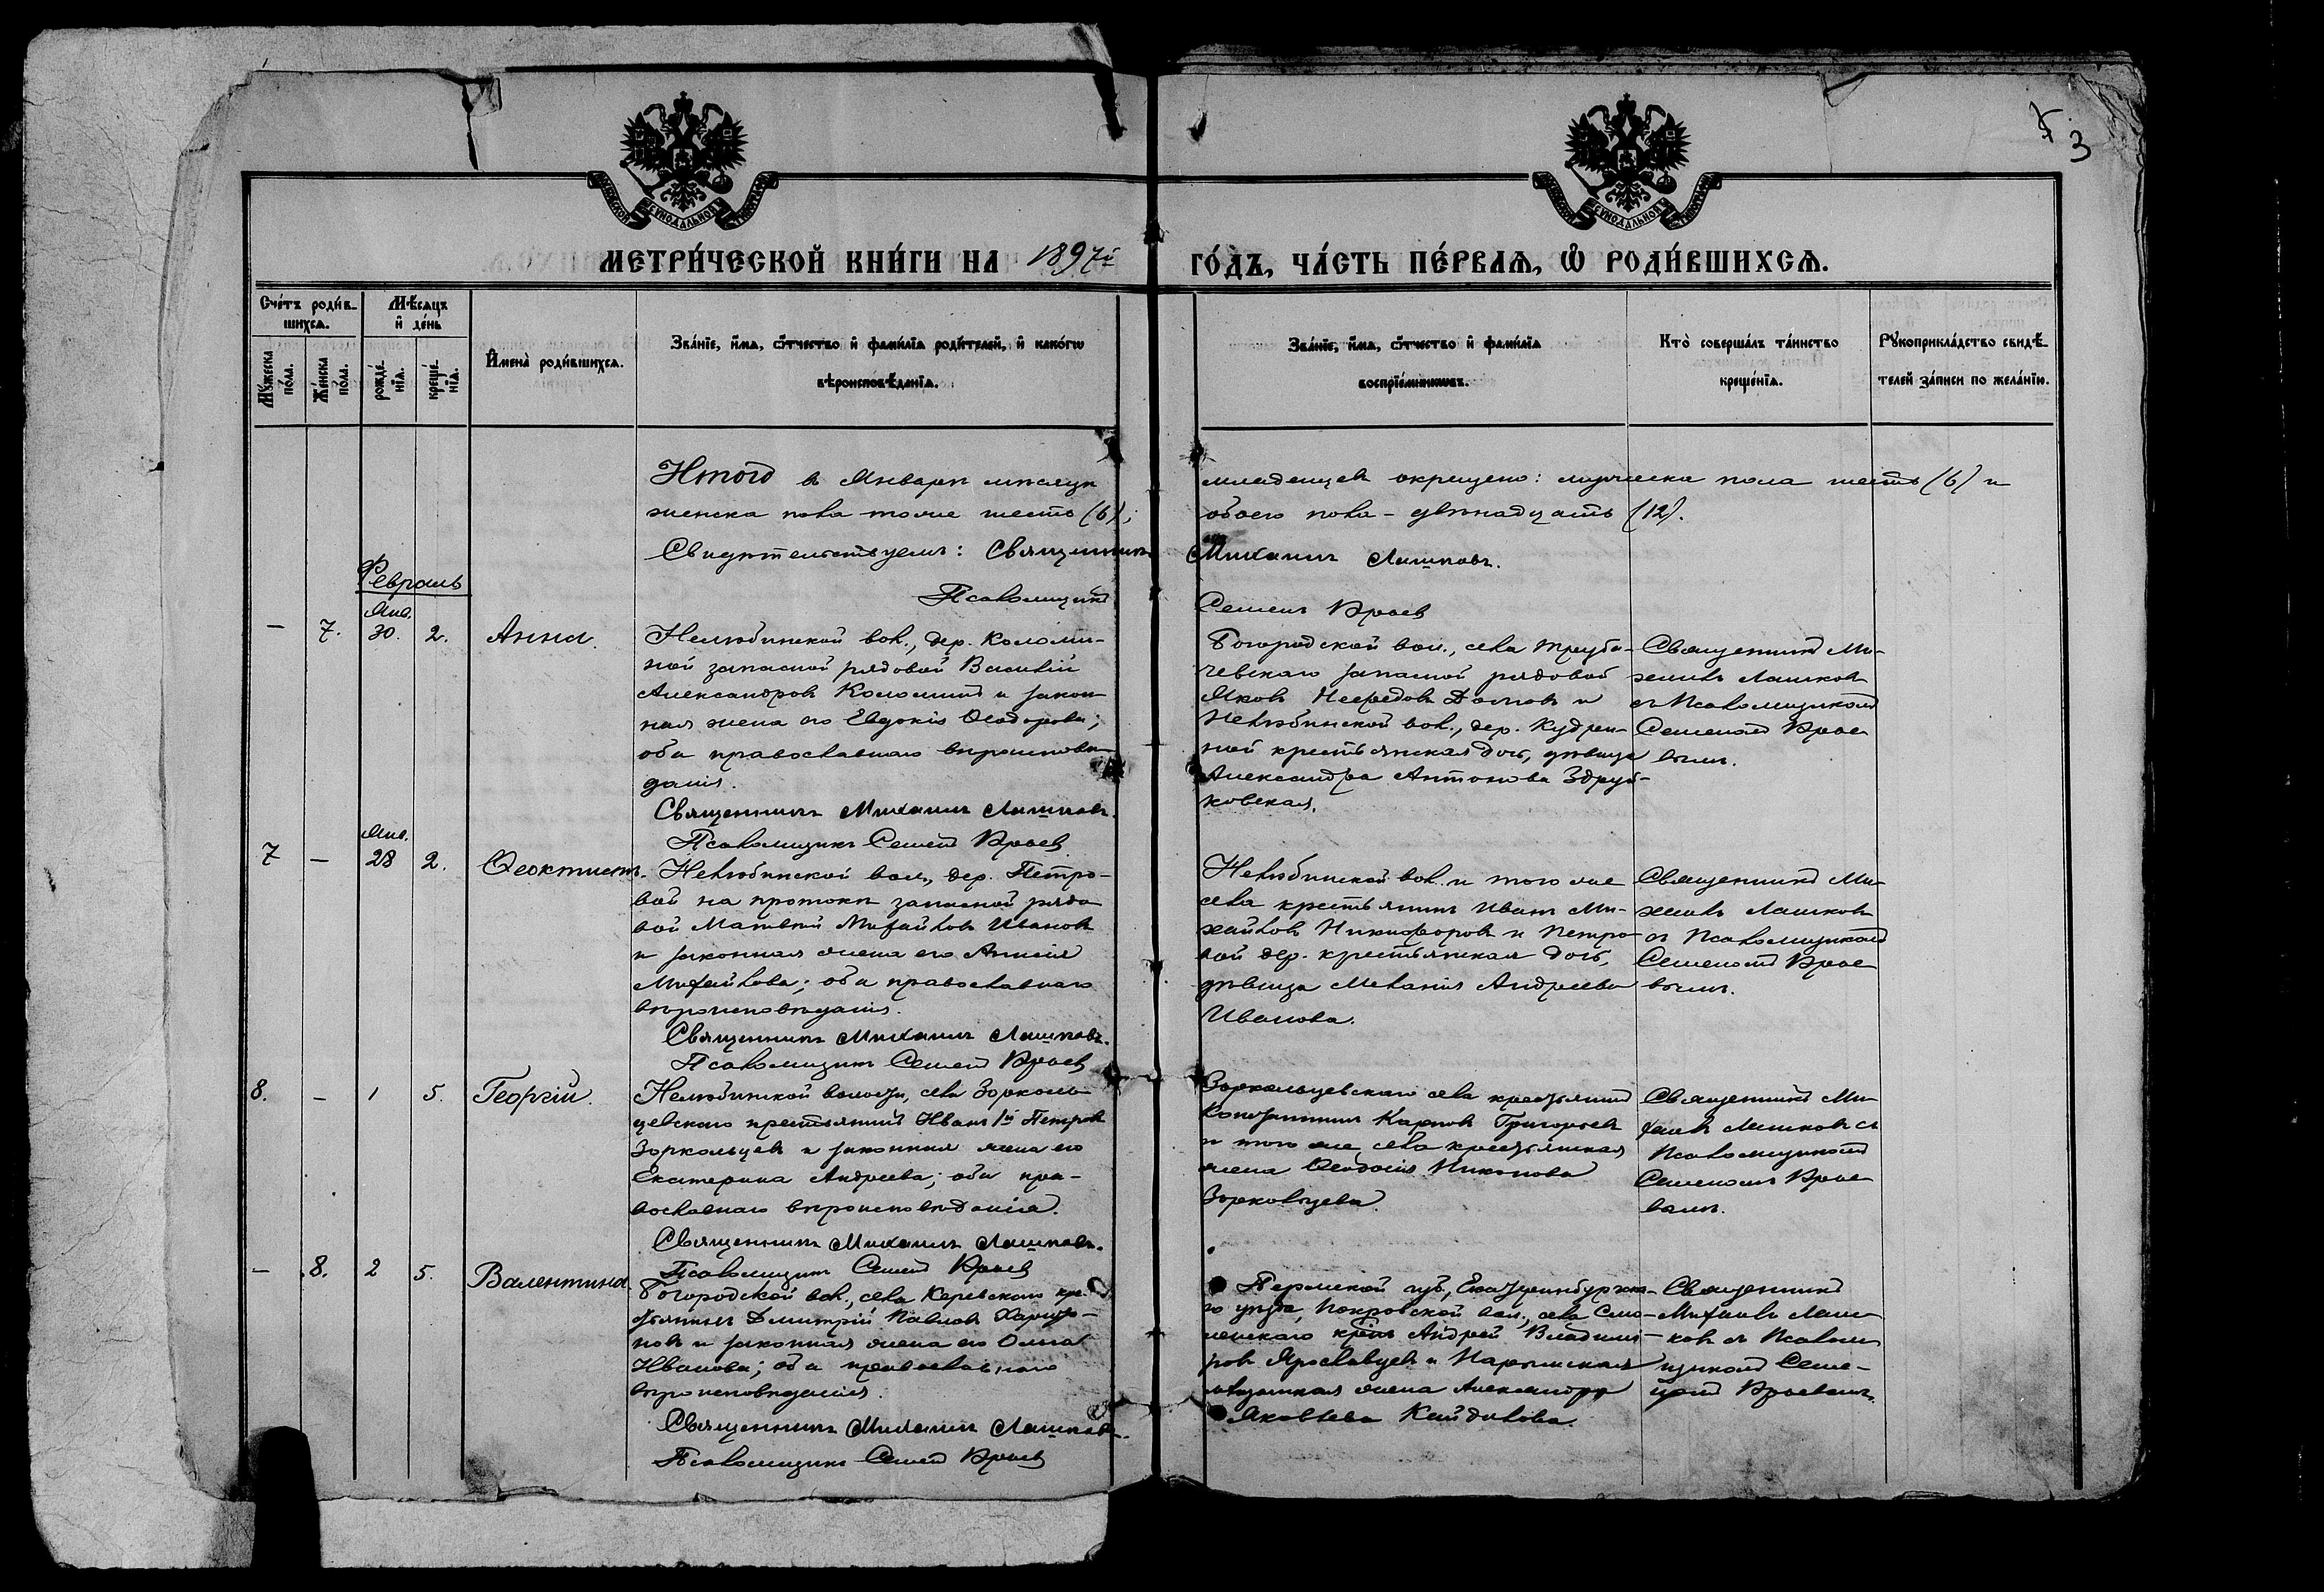 3
МЕТРИ́ЧЕСКОЙ КНИ́ГИ НА 1897й ГО́ДЪ, ЧА́СТЬ ПЕ́РВАѦ, Ѽ РОДИ́ВШИХСѦ.
Сче́тъ роди́в-
шихсѧ.
Мѣ́сѧцъ
и҆ де́нь
Мꙋ́жеска
по́ла.
Же́нска
по́ла.
рожде́-
нїѧ.
креще́-
нїѧ.
И҆мена̀ роди́вшихсѧ.
Зва́нїе, и҆́мѧ, ѻ҆́тчество и҆ фами́лїѧ роди́телей, и҆ како́гѡ
вѣроисповѣ́данїѧ.
Зва́нїе, и҆́мѧ, ѻ҆́тчество и҆ фами́лїѧ
воспрїе́мниковъ.
Кто̀ соверша́лъ та́инство
креще́нїѧ.
Рꙋкоприкла́дство свидѣ́-
телей за́писи по жела́нїю.
Итого въ Январѣ мѣсяцѣ младенцевъ окрещено: мужеска пола шесть (6) и
женска пола тоже шесть (6); обоего пола – двѣнадцать (12).
Свидѣтельствуемъ: Священникъ Михаилъ Лашковъ.
Псаломщикъ Семенъ
Февраль
– 7.
Янв.
30. 2.
Анна.
Нелюбинской вол., дер. Коломи-
ной запасной рядовой Василій
Александровъ Коломинъ и закон-
ная жена его Евдокія Ѳеодорова;
оба православнаго вѣроисповѣ-
данія.
Священникъ Михаилъ Лашковъ.
Псаломщикъ Семенъ
Богородской вол., села Труба-
чевскаго запасной рядовой
Яковъ и
Нелюбинской вол., дер. Кудрин-
ной крестьянская дочь, дѣвица
Александра Антонова
Священникъ Ми-
хаилъ Лашковъ
съ Псаломщикомъ
Семеномъ
7 –
Янв.
28 2.
Ѳеоктистъ.
Нелюбинской вол., дер. Петро-
вой на протокѣ запасной рядо
вой Матвѣй Михайловъ Ивановъ
и законная жена его Анисія
Михайлова; оба православнаго
вѣроисповѣданія.
Священникъ Михаилъ Лашковъ.
Псаломщикъ Семенъ
Нелюбинской вол. и того же
села крестьянинъ Иванъ Ми-
хайловъ Никифоровъ и Петро
вой дер. крестьянская дочь,
дѣвица Меланія Андреева
Иванова.
Священникъ Ми-
хаилъ Лашковъ
съ Псаломщикомъ
Семеномъ
8. – 1 5.
Георгій.
Нелюбинской волости, села Зоркаль-
цевскаго крестьянинъ Иванъ 1й Петровъ
Зоркальцевъ и законная жена его
Екатерина Андреева; оба пра-
вославнаго вѣроисповѣданія.
Священникъ Михаилъ Лашковъ.
Псаломщикъ Семенъ
Зоркальцевскаго села крестьянинъ
Константинъ Карповъ Григорьевъ
и того же села крестьянская
жена Ѳеодосія Никонова
Зоркальцева.
Священникъ Ми-
хаилъ Лашковъ съ
Псаломщикомъ
Семеномъ
– 8. 2 5.
Валентина
Богородской вол., села Каревскаго кре-
стьянинъ Дмитрій Павловъ Харито-
новъ и законная жена его Ольга
Иванова; оба православнаго
вѣроисповѣданія.
Священникъ Михаилъ Лашковъ.
Псаломщикъ Семенъ
Пермской губ., Екатеринбургска-
го уѣзда, Покровской вол., села
Андрей Владимі-
ровъ Ярославцевъ и Нарымская
мѣщанская жена Александра
Яковлева Кайдалова.
Священникъ
Михаилъ Лаш-
ковъ съ Псалом-
щикомъ Семе-